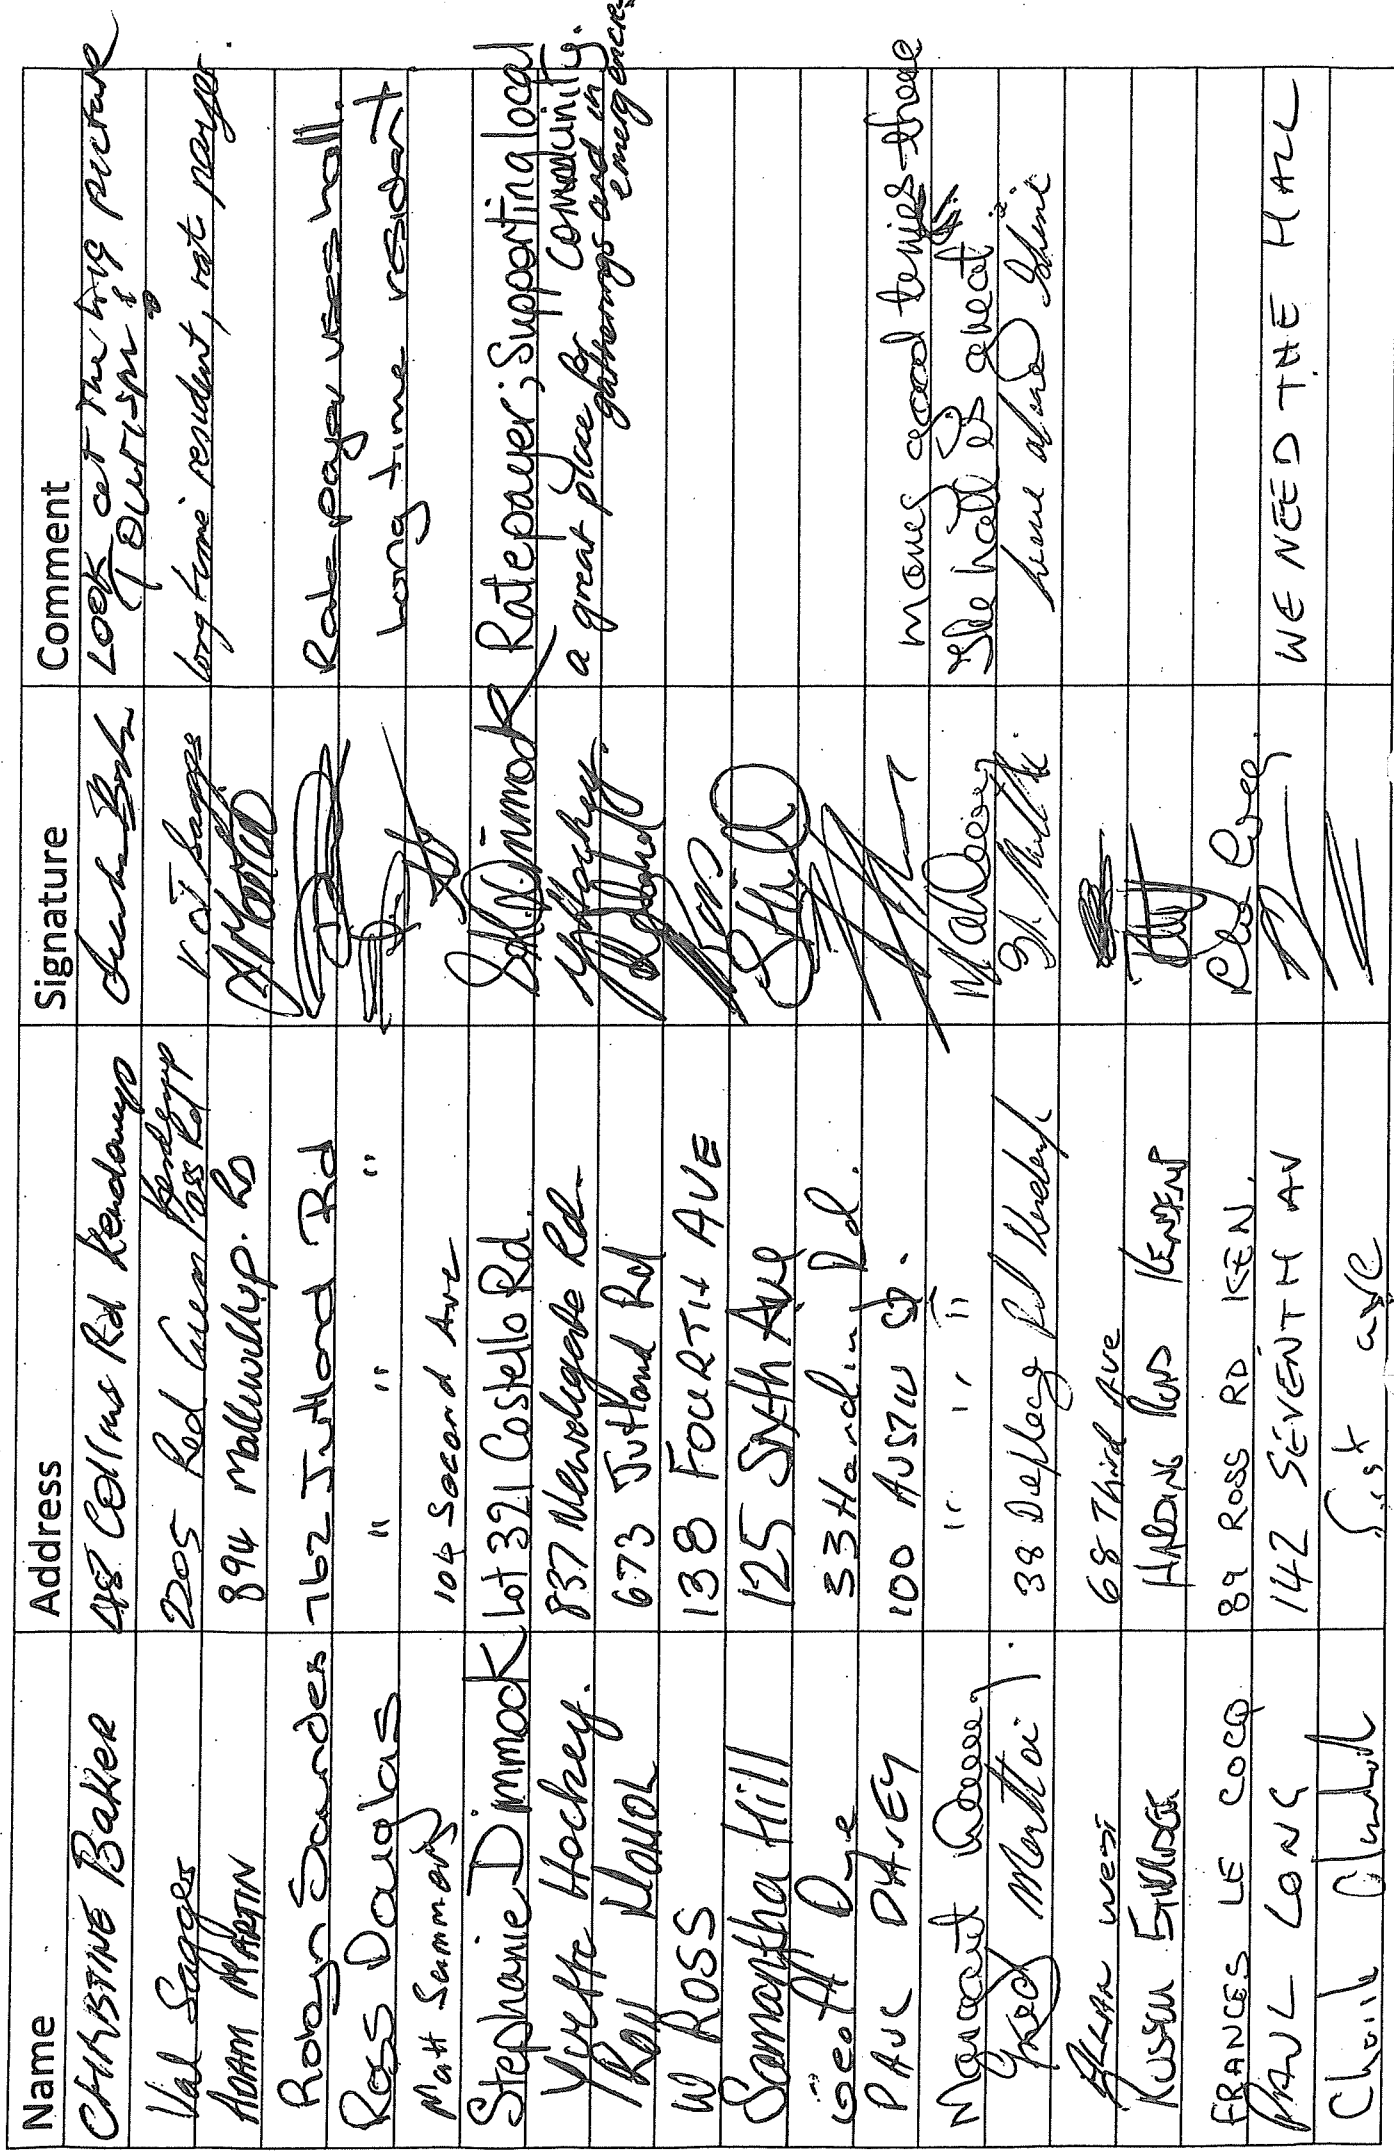 Name Address Signature Comment
CHRISTINE BAKER 48 Collins Rd Kendenup Look at the big picture
(Tourism)
Val Saggers 2205 Red Gum Pass Rd Kendenup V J Saggers long time resident, rate payer.
ADAM MARTIN 894 Mallawillup. RD AMartin
Robyn Saunders 762 Jutland Rd Rate payer uses hall.
Ross Douglas " " " Long time resident
Matt Sammons 104 Second Ave
Stephanie Dimmock Lot 321 Costello Rd. SADimmock Ratepayer; Supporting local community.
Yvette Hockey. 837 Newdegate Rd. YHockey. a great place for gatherings and in emergency
Ron 673 Jutland Rd
W ROSS 138 FOURTH AVE Ross
Samantha Hill 125 Sixth Ave SHill
Geoff Dye 33 Hardin Rd.
PAUL DAVEY 100 AUSTIN St. many good times there
Margaret " " " The hall is great
Fred 38 Rd have also
ALLAN WEST 68 Third Ave
RUSSELL HARDING ROAD KENDENUP
FRANCES LE COCQ 89 ROSS RD KEN.
PAUL LONG 142 SEVENTH AV WE NEED THE HALL
Chris ave